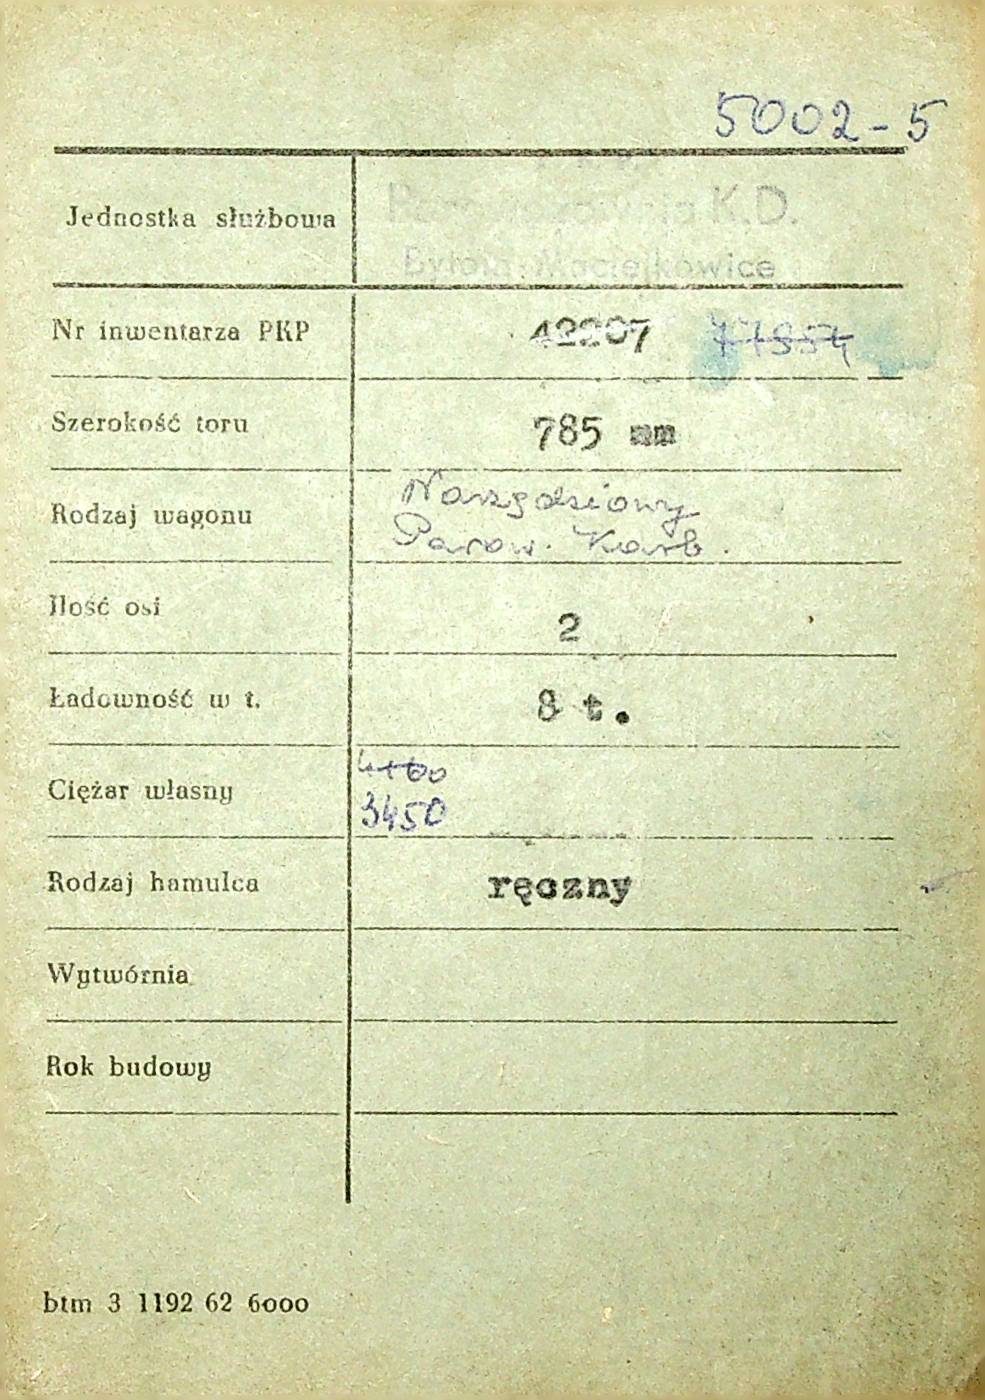 5002-5
Jednostka służbowa K.D.
Bytom-Maciejkowice
Nr inwentarza PKP 42207
Szerokość toru 785 mm
Rodzaj wagonu Narzędziowy
Parow. Karb.
Ilość osi 2
Ładowność w t. 8 t.
Ciężar własny
3450
Rodzaj hamulca ręczny
Wytwórnia
Rok budowy
btm 3 1192 62 6000